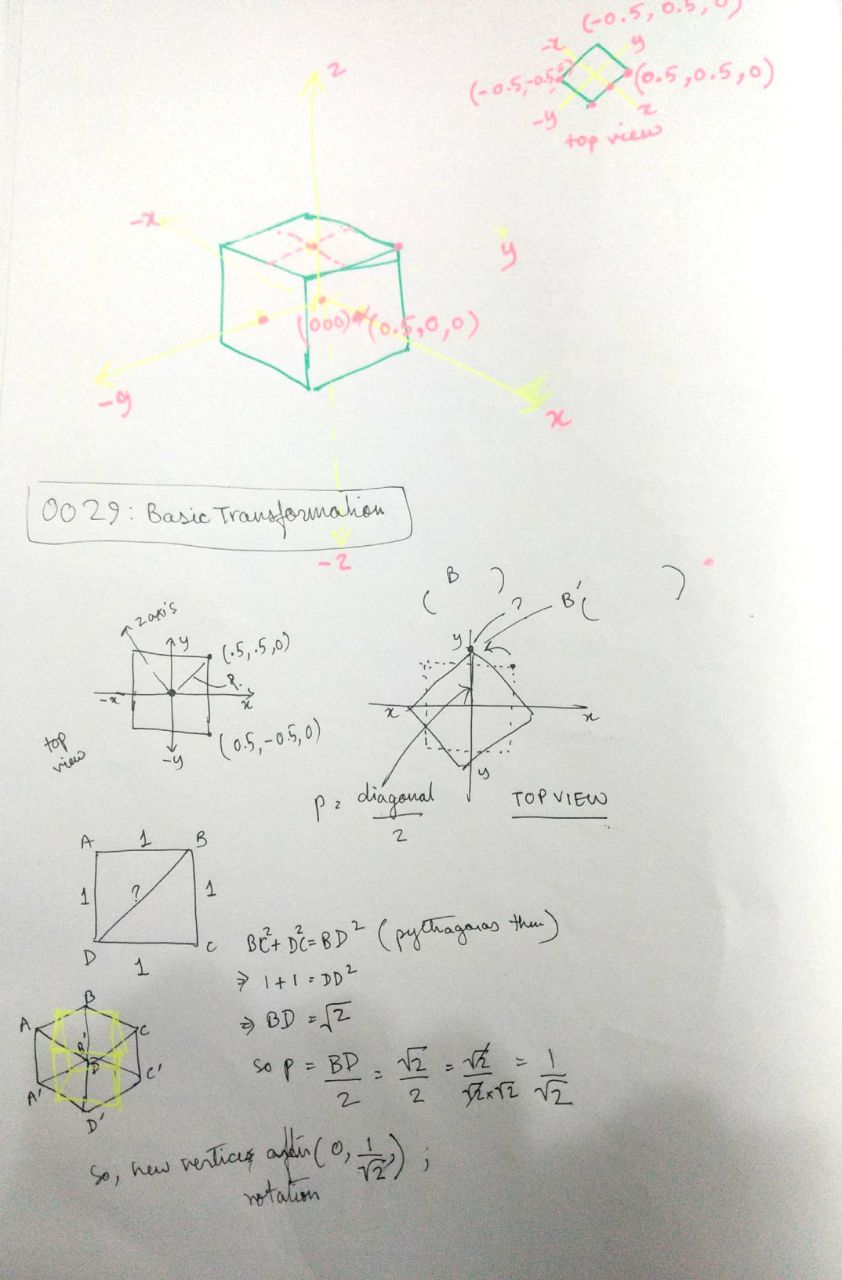 (-0.5, 0.5, 0)
-x
y
(-0.5,-0.5
(0.5,0.5,0)
-y
x
top view
z
-x
y
(000)
(0.5,0,0)
-y
x
0029: Basic Transformation
-z
z axis
y
(.5,.5,0)
-x
x
(0.5,-0.5,0)
-y
top
view
( B )
?
B'( )
y
x
x
y
p = diagonal
2
TOP VIEW
A 1 B
1 ? 1
D 1 C
BC² + DC² = BD² (pythagoras thm)
⇒ 1+1 = DD²
⇒ BD = √2
so p = BD/2 = √2/2 = √2/√2×√2 = 1/√2
B
A C
B'
D
A' C'
D'
So, new vertices after (0, 1/√2,) ;
rotation